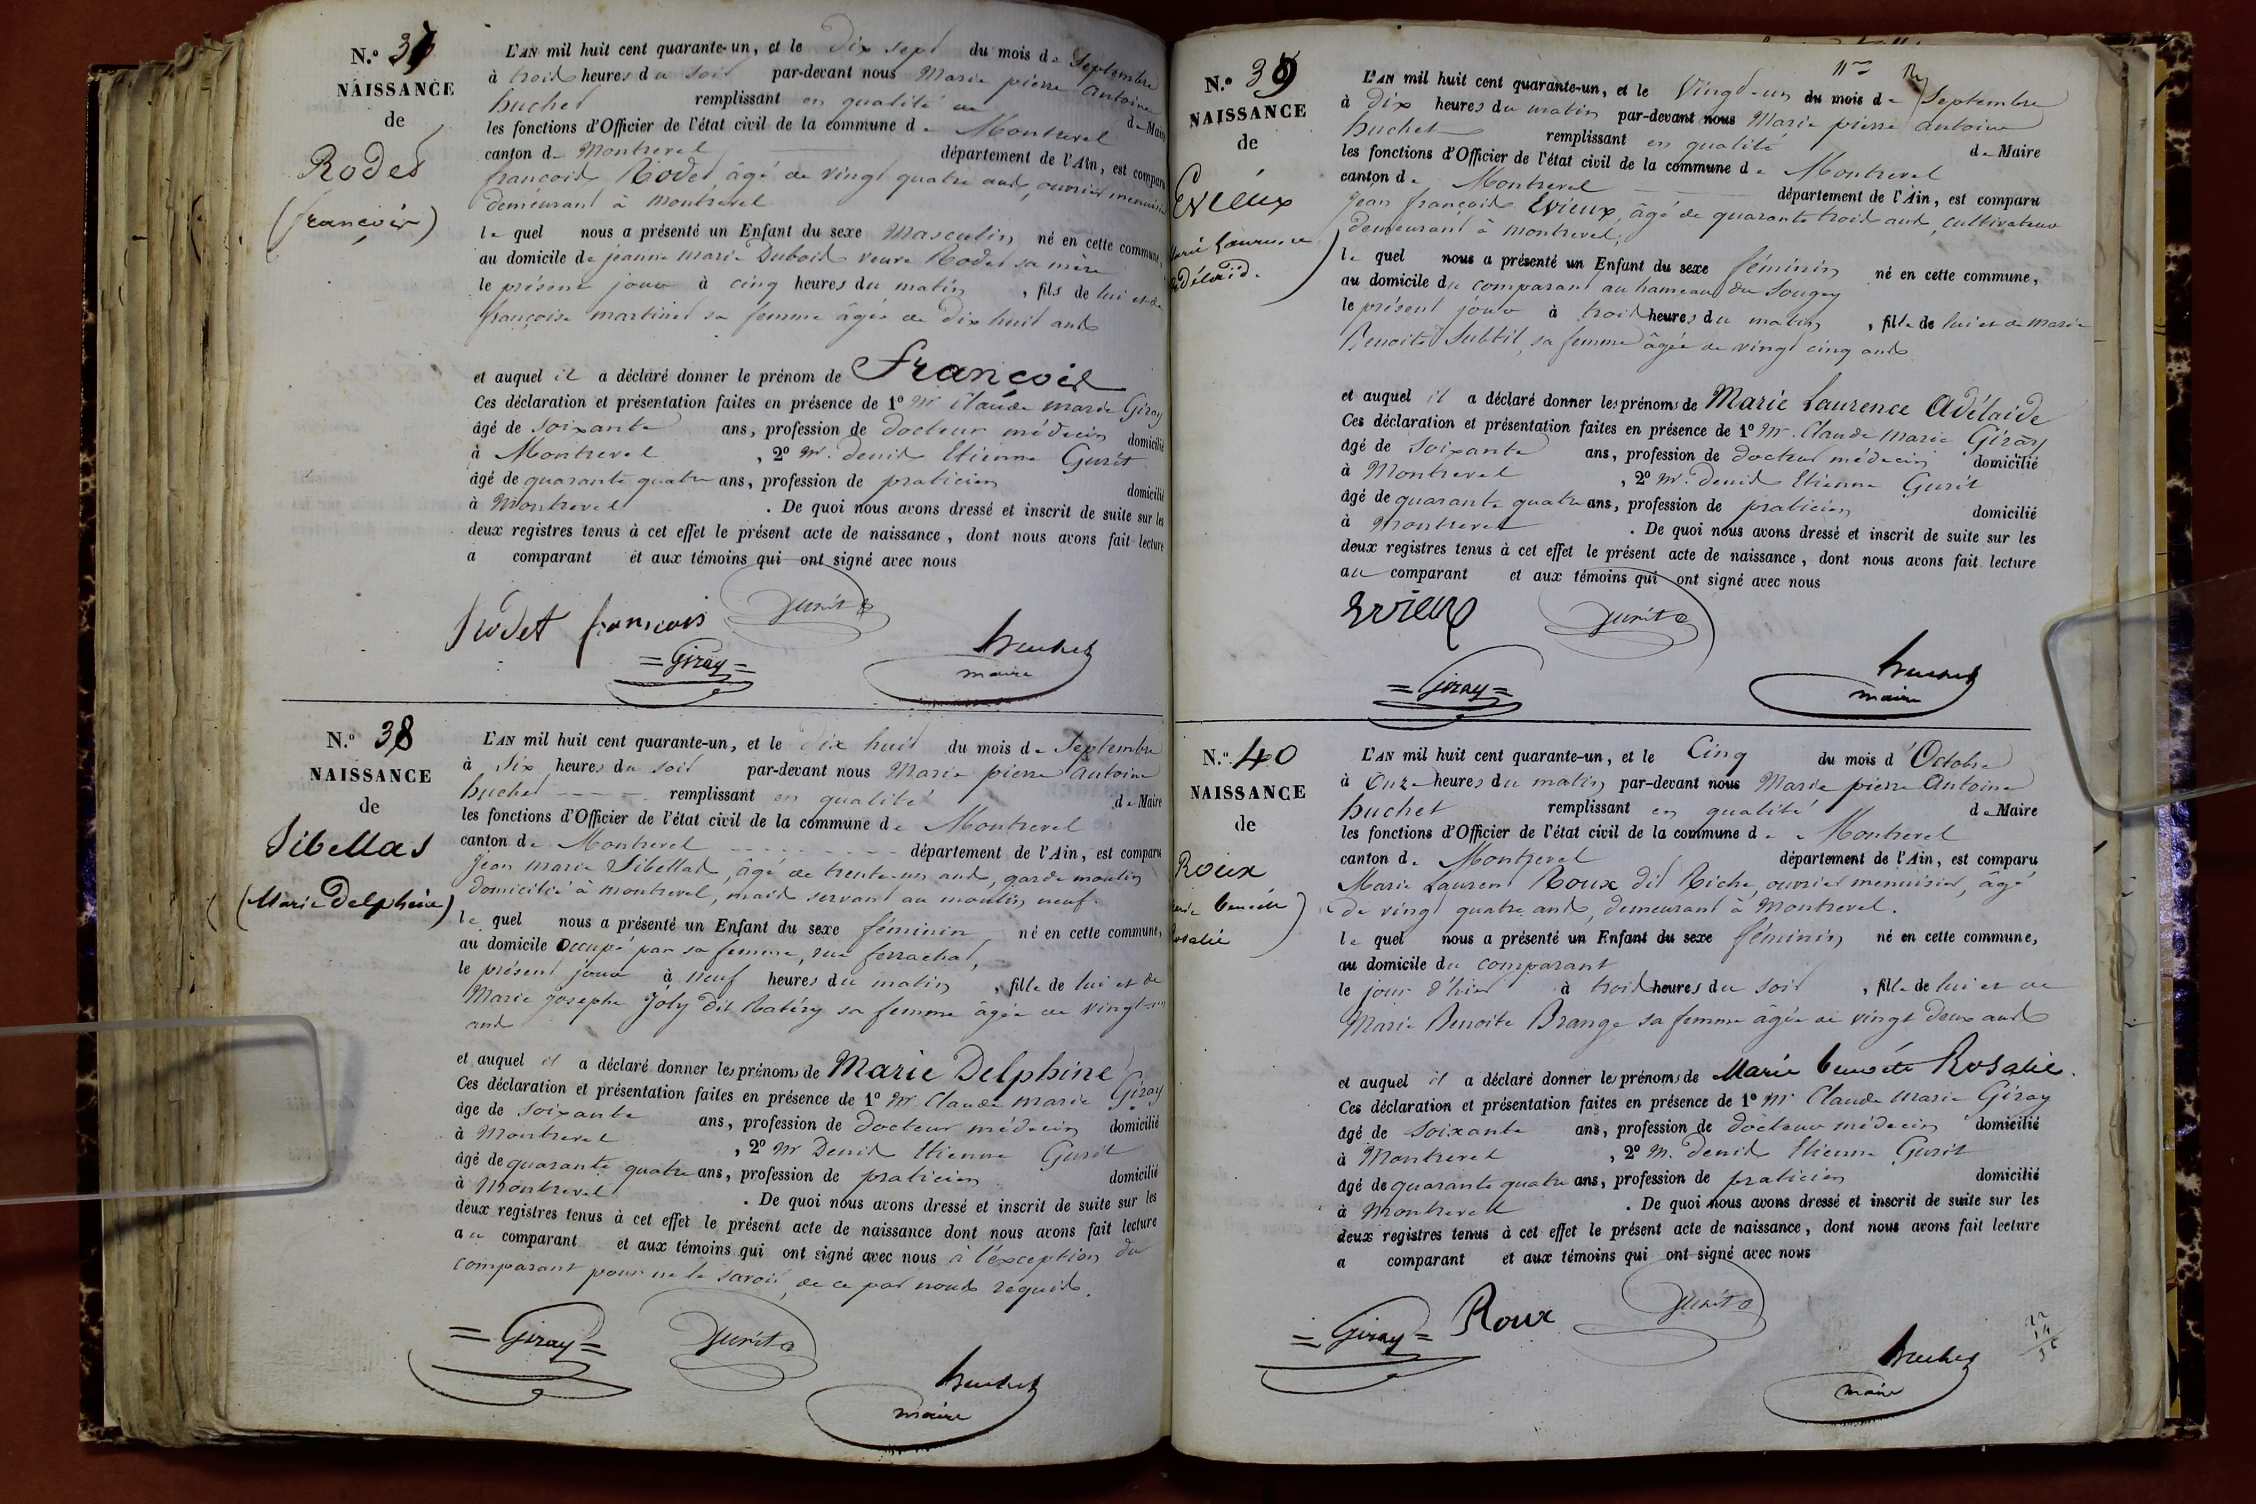 N.º 37
NAISSANCE
de
Rodet
(françois)
L'AN mil huit cent quarante-un, et le dix sept du mois de Septembre
à trois heures du soir par-devant nous Marie pierre antoine
huchet remplissant en qualité de Maire
les fonctions d'Officier de l'état civil de la commune de Montrevel
canton de Montrevel département de l'Ain, est comparu
francois Rodet âgé de vingt quatre ans, ouvrier menuisier
demeurant à Montrevel
le quel nous a présenté un Enfant du sexe Masculin né en cette commune,
au domicile de jeanne marie Dubois veuve Rodet sa mère
le présent jour à cinq heures du matin, fils de lui et de
françoise martinet sa femme âgée de dix huit ans
et auquel il a déclaré donner le prénom de François
Ces déclaration et présentation faites en présence de 1º Mr Claude marie Giray
âgé de soixante ans, profession de docteur médecin domicilié
à Montrevel, 2º Mr. Denis Etienne Gurit
âgé de quarante quatre ans, profession de praticien domicilié
à Montrevel. De quoi nous avons dressé et inscrit de suite sur les
deux registres tenus à cet effet le présent acte de naissance, dont nous avons fait lecture
a comparant et aux témoins qui ont signé avec nous
Rodet francois Gurit
= Giray = huchet
maire
N.º 38
NAISSANCE
de
Sibellas
(Marie Delphine)
L'AN mil huit cent quarante-un, et le dix huit du mois de Septembre
à Six heures du soir par-devant nous Marie pierre antoine
huchet remplissant en qualité de Maire
les fonctions d'Officier de l'état civil de la commune de Montrevel
canton de Montrevel département de l'Ain, est comparu
jean marie Sibellas, âgé de trente-un ans, garde moulin
domicilié à montrevel, mais servant au moulin neuf.
le quel nous a présenté un Enfant du sexe féminin né en cette commune,
au domicile occupé par sa femme, rue ferrachat,
le présent jour à neuf heures du matin, fille de lui et de
Marie josephe Joly dit Ratéry sa femme âgée de vingt-un
ans
et auquel il a déclaré donner les prénoms de Marie Delphine
Ces déclaration et présentation faites en présence de 1º Mr Claude marie Giray
âge de soixante ans, profession de docteur médecin domicilié
à Montrevel, 2º Mr Denis Etienne Gurit
âgé de quarante quatre ans, profession de praticien domicilié
à Montrevel. De quoi nous avons dressé et inscrit de suite sur les
deux registres tenus à cet effet le présent acte de naissance dont nous avons fait lecture
au comparant et aux témoins qui ont signé avec nous à l'exception du
comparant pour ne le savoir, de ce par nous requis.
= Giray = Gurit
huchet
maire
N.º 39
NAISSANCE
de
Evieux
Marie Laurence
Adélaïde
L'AN mil huit cent quarante-un, et le Vingt-un du mois de Septembre
à dix heures du matin par-devant nous Marie pierre antoine
huchet remplissant en qualité de Maire
les fonctions d'Officier de l'état civil de la commune de Montrevel
canton de Montrevel département de l'Ain, est comparu
jean françois Evieux, âgé de quarante trois ans, cultivateur
demeurant à montrevel,
le quel nous a présenté un Enfant du sexe féminin né en cette commune,
au domicile du comparant au hameau du Sougey
le présent jour à trois heures du matin, fille de lui et de marie
Benoite Subtil, sa femme âgée de vingt cinq ans
et auquel il a déclaré donner les prénoms de Marie Laurence Adélaide
Ces déclaration et présentation faites en présence de 1º Mr. Claude Marie Giray
âgé de soixante ans, profession de docteur médecin domicilié
à Montrevel, 2º Mr. Denis Etienne Gurit
âgé de quarante quatre ans, profession de praticien domicilié
à Montrevel. De quoi nous avons dressé et inscrit de suite sur les
deux registres tenus à cet effet le présent acte de naissance, dont nous avons fait lecture
au comparant et aux témoins qui ont signé avec nous
Evieux Gurit
= Giray = huchet
maire
N.º 40
NAISSANCE
de
Roux
Marie Benoite
Rosalie
L'AN mil huit cent quarante-un, et le Cinq du mois d'Octobre
à Onze heures du matin par-devant nous Marie pierre Antoine
huchet remplissant en qualité de Maire
les fonctions d'Officier de l'état civil de la commune de Montrevel
canton de Montrevel département de l'Ain, est comparu
Marie Laurent Roux dit Riche, ouvrier menuisier, âgé
de vingt quatre ans, demeurant à Montrevel.
le quel nous a présenté un Enfant du sexe féminin né en cette commune,
au domicile du comparant
le jour d'hier à trois heures du soir, fille de lui et de
Marie Benoite Brange sa femme âgée de vingt deux ans
et auquel il a déclaré donner les prénoms de Marie benoite Rosalie.
Ces déclaration et présentation faites en présence de 1º Mr Claude Marie Giray
âgé de soixante ans, profession de docteur médecin domicilié
à Montrevel, 2º M. Denis Etienne Gurit
âgé de quarante quatre ans, profession de praticien domicilié
à Montrevel. De quoi nous avons dressé et inscrit de suite sur les
deux registres tenus à cet effet le présent acte de naissance, dont nous avons fait lecture
a comparant et aux témoins qui ont signé avec nous
= Giray = Roux Gurit
huchet
maire